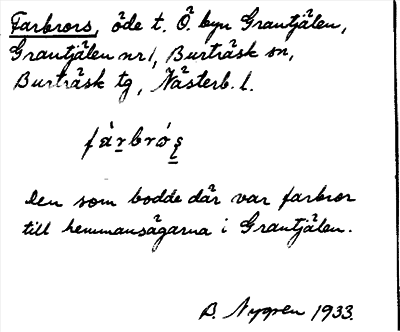 Farbrors, öde t. Ö. byn Grantjälen,
Grantjälen nr 1, Burträsk sn,
Burträsk tg, Västerb. l.
fàrbrós̱
Den som bodde där var farbror
till hemmansägarna i Grantjälen.
B. Nygren 1933.